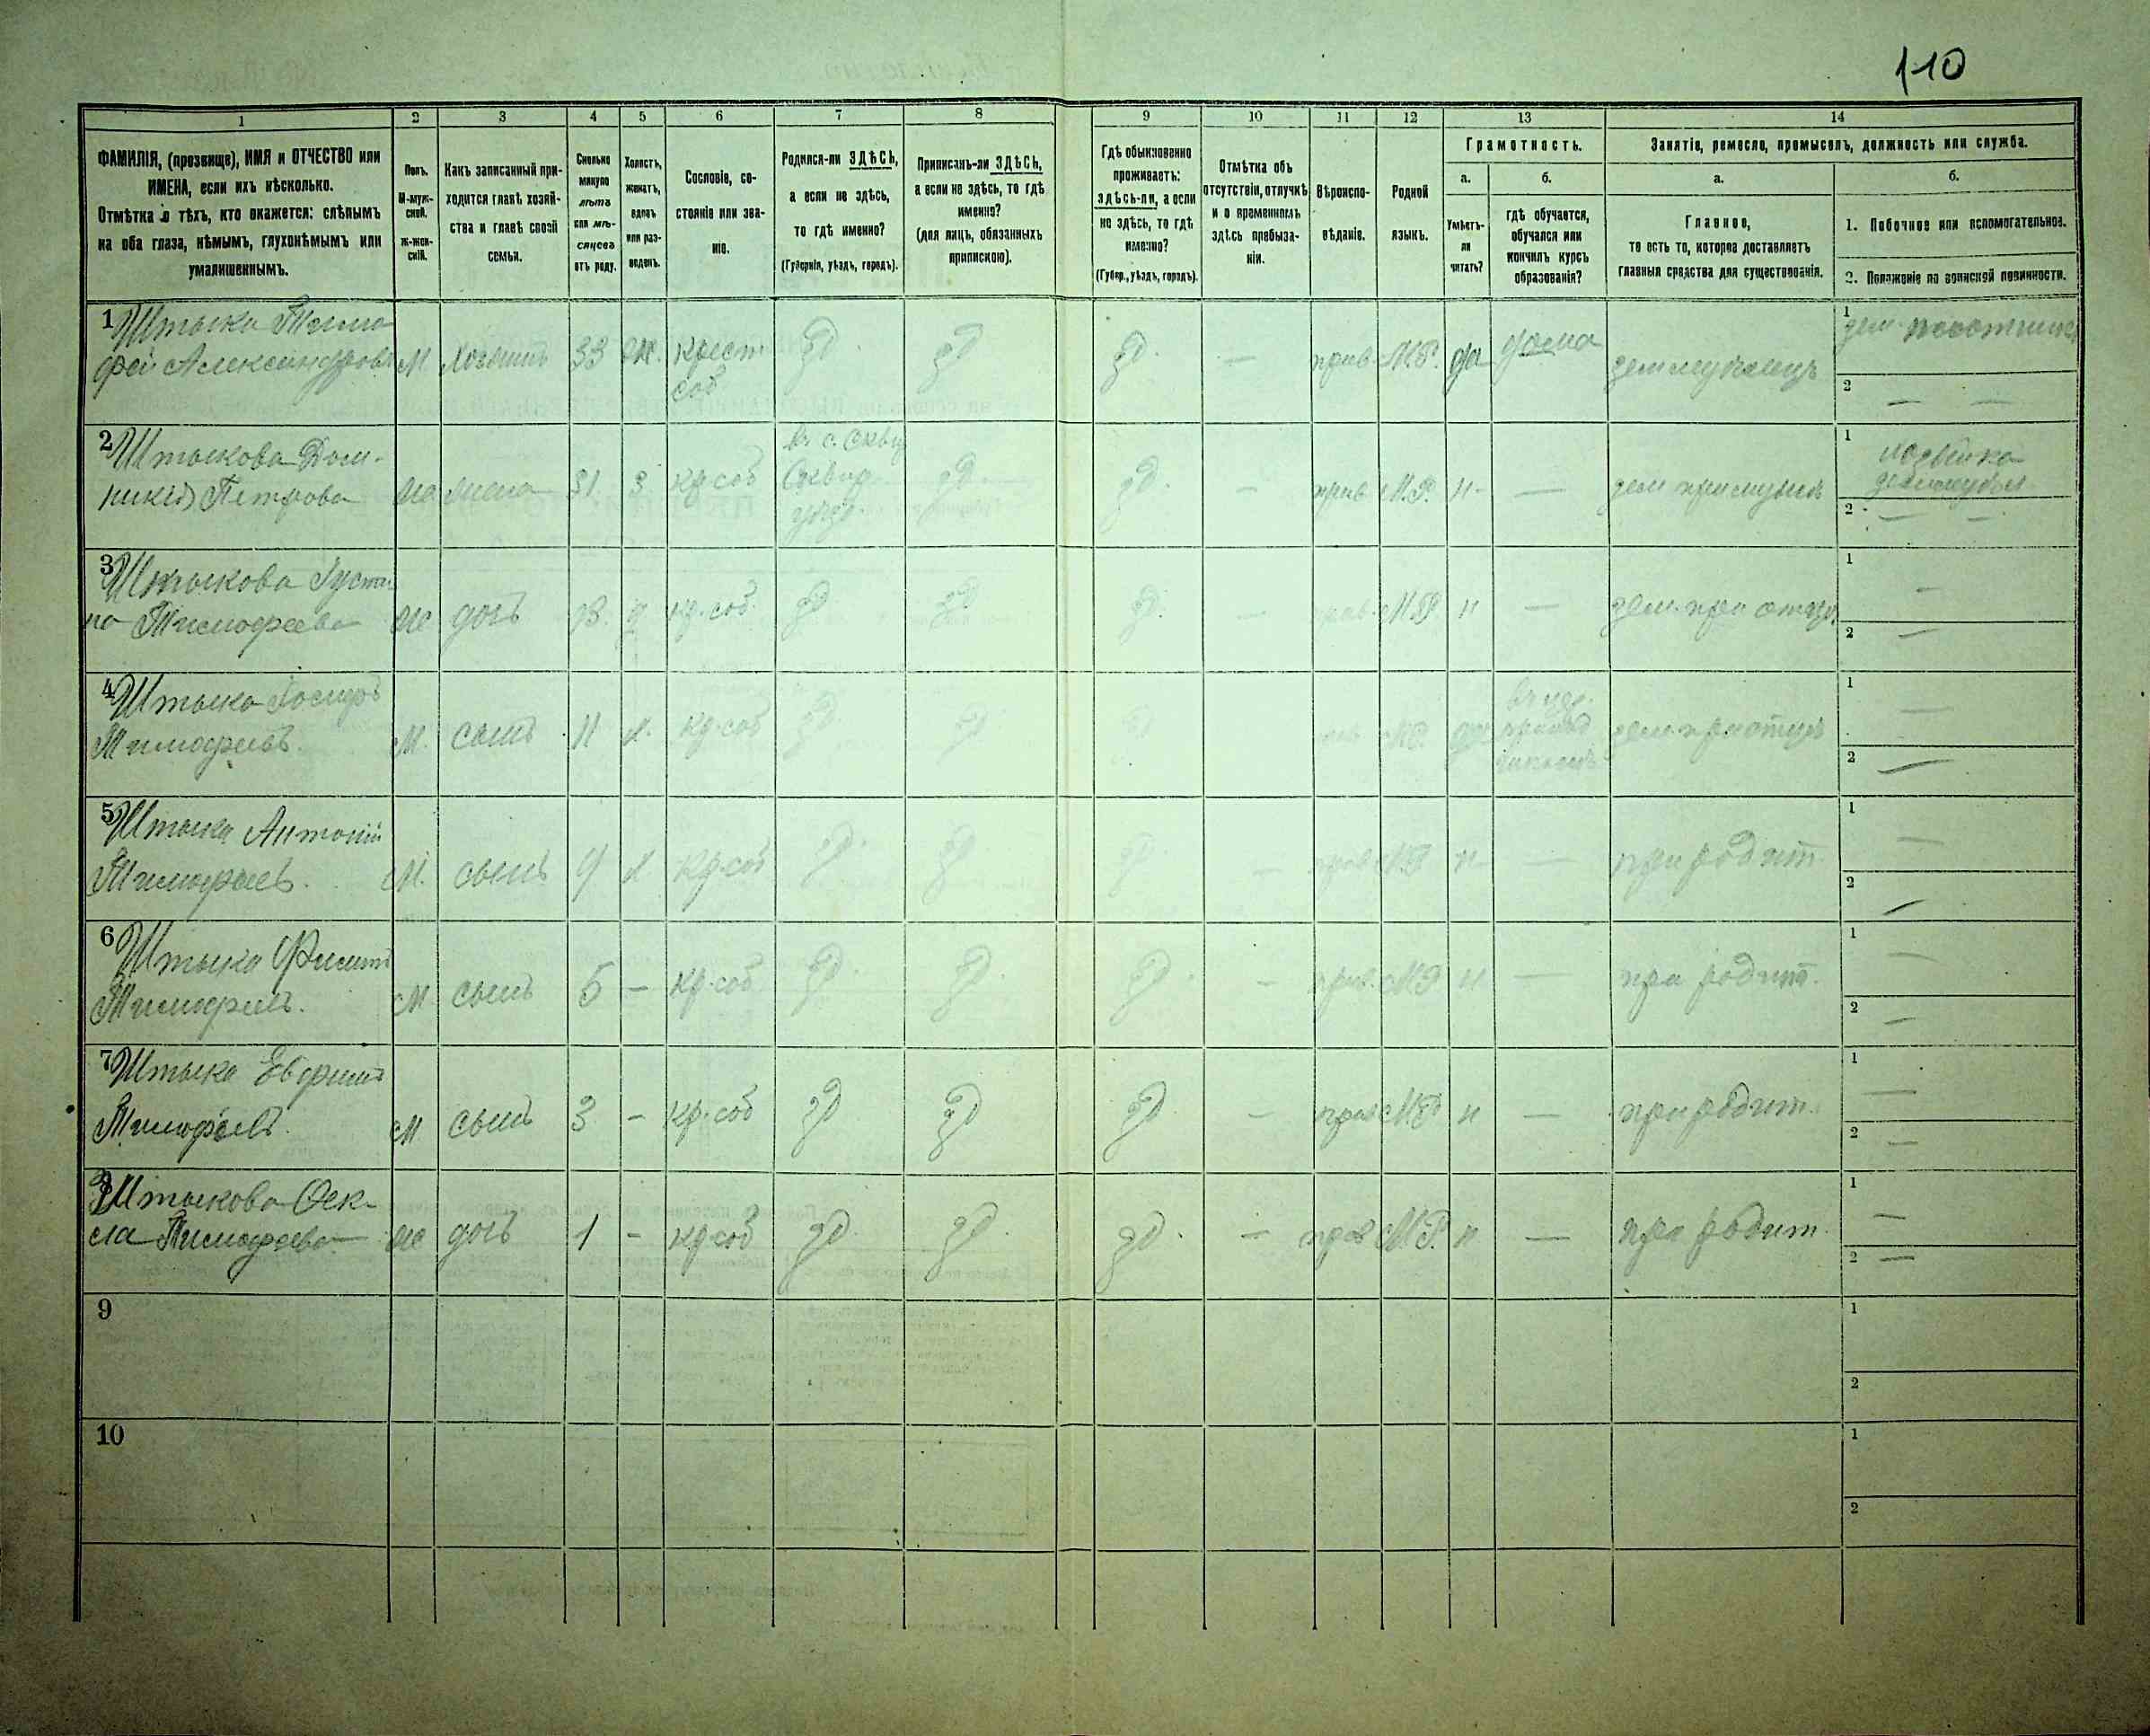 110
1 2 3 4 5 6 7 8 9 10 11 12 13 14
ФАМИЛІЯ, (прозвище), ИМЯ и ОТЧЕСТВО или
ИМЕНА, если ихъ нѣсколько.
Отмѣтка о тѣхъ, кто окажется: слѣпымъ
на оба глаза, нѣмымъ, глухонѣмымъ или
умалишеннымъ.
Полъ.
М-муж-
ской.
ж-жен-
скій.
Какъ записанный при-
ходится главѣ хозяй-
ства и главѣ своей
семьи.
Сколько
минуло
лѣтъ
или мѣ-
сяцевъ
отъ роду.
Холостъ,
женатъ,
вдовъ
или раз-
веденъ.
Сословіе, со-
стояніе или зва-
ніе.
Родился-ли ЗДѢСЬ,
а если не здѣсь,
то гдѣ именно?
(Губернія, уѣздъ, городъ).
Приписанъ-ли ЗДѢСЬ,
а если не здѣсь, то гдѣ
именно?
(для лицъ, обязанныхъ
припискою).
Гдѣ обыкновенно
проживаетъ:
здѣсь-ли, а если
не здѣсь, то гдѣ
именно?
(Губер., уѣздъ, городъ).
Отмѣтка объ
отсутствіи, отлучкѣ
и о временномъ
здѣсь пребыва-
ніи.
Вѣроиспо-
вѣданіе.
Родной
языкъ.
Грамотность.
а.
Умѣетъ-
ли
читать?
б.
гдѣ обучается,
обучался или
кончилъ курсъ
образованія?
Занятіе, ремесло, промыселъ, должность или служба.
а.
Главное,
то есть то, которое доставляетъ
главныя средства для существованія.
б.
1. Побочное или вспомогательное.
2. Положеніе по воинской повинности.
1 Штыка Тимо
фей Александровъ М 33 ж. крест
соб зд. зд зд. — прав. М.Р. да дома
1
2 — —
2 Штыкова Дом-
никія Петрова же жена 31 З кр соб
Сквир
зд. зд. — прав М.Р. н — зем при мужѣ
1
2 — —
3 Штыкова
Тимофеева же дочь кр. соб. зд зд зд. — прав. М.Р н — зем. при отцѣ
1 —
2 —
4 Штыка
Тимофеевъ. М. сынъ 11 х. кр. соб зд. зд. зд М.Р. да зем. при отцѣ
1 —
2 —
5 Штыка Антоній
Тимофеевъ. М. сынъ 9 х кр. соб зд. зд зд. — прав М.Р н — при родит.
1 —
2 —
6 Штыка Филипъ
Тимофеевъ. М сынъ 5 — кр. соб зд. зд. зд. — прав. М.Р н — при родит.
1 —
2 —
7 Штыка
Тимофеевъ. М сынъ 3 — кр. соб зд зд зд — прав М.Р н — при родит.
1 —
2 —
8 Штыкова Фек-
ла Тимофеева же дочь 1 — кр соб зд. зд. зд. — прав М.Р. н — при родит.
1 —
2 —
9
1
2
10
1
2